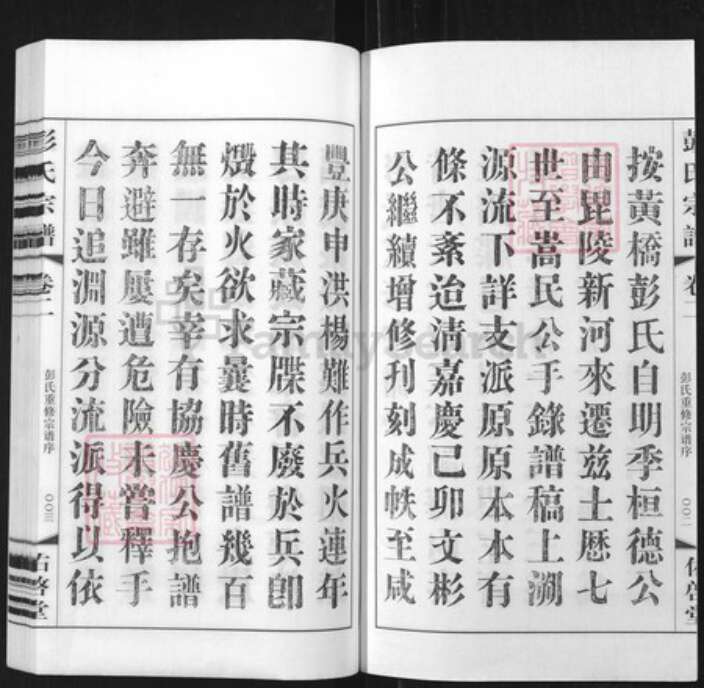 彭氏宗譜
卷二
彭氏重修宗谱序
〇〇二
按黃橋彭氏自明季桓德公
由毘陵新河來遷茲土曆七
世至嵩民公手錄譜稿上溯
源流下詳支派原原本本有
條不紊迨清嘉慶己卯文彬
公繼續增修刊刻成帙至咸
豐庚申洪楊難作兵火連年
其時家藏宗牒不廢於兵即
燬於火欲求曩時舊譜幾百
無一存矣幸有協慶公抱譜
奔避雖屢遭危險未嘗釋手
今日追淵源分流派得以依
彭氏宗譜
卷二
彭氏重修宗谱序
〇〇三
佑啓堂
FamilySearch